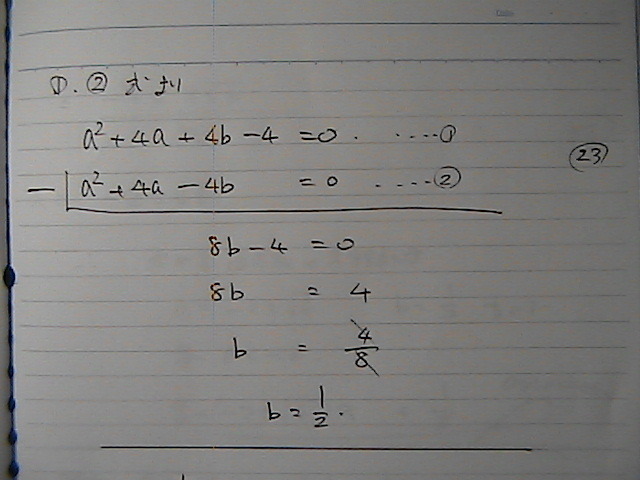 ①. ② 式より
a² + 4a + 4b - 4 = 0. ....①
㉓
- a² + 4a - 4b = 0 ....②
8b - 4 = 0
8b = 4
b = 4/8
b = 1/2.